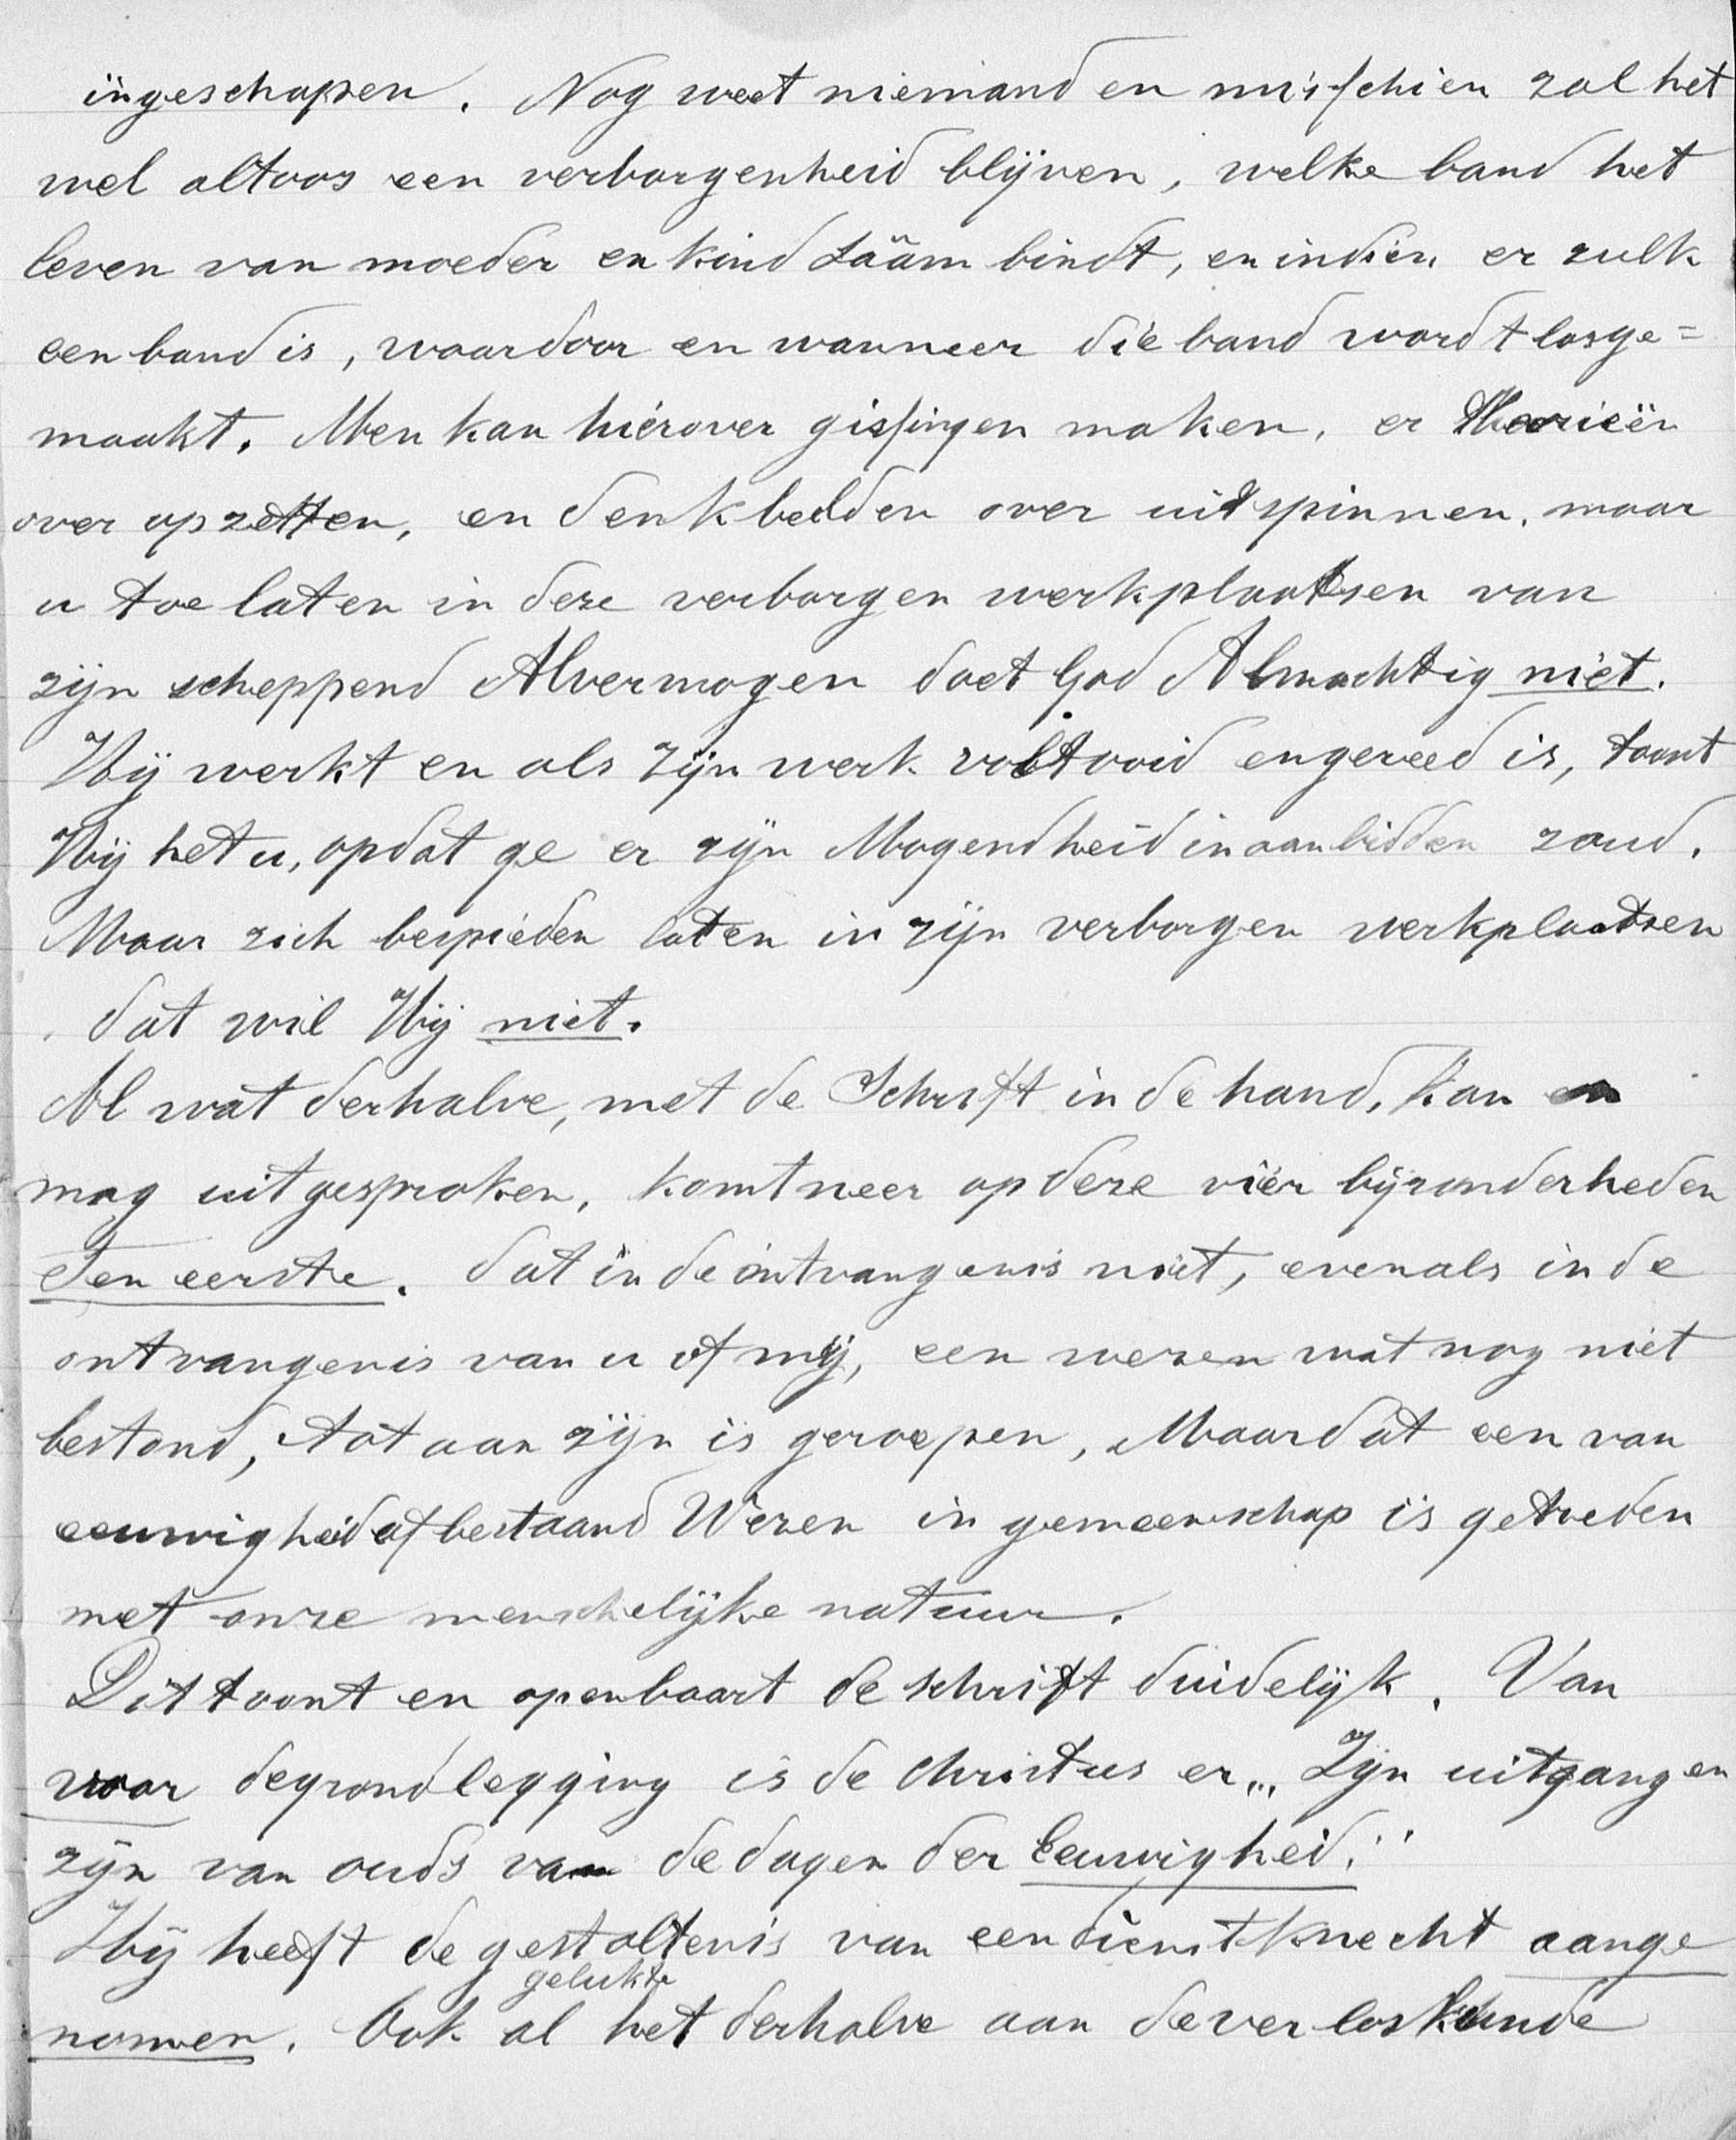 ingeschapen. Nog weet niemand en misschien zal het
wel altoos een verborgenheid blijven, welke band het
leven van moeder en kind Sââm bindt, en indien er zulk
een band is, waardoor en wanneer die band wordt losge=
maakt. Men kan hierover gissingen maken, er theorieën
over op zetten, en denkbeelden over uitspinnen, maar
u toe laten in deze verborgen werkplaatsen van
zijn scheppend Alvermogen doet God Almachtig niet.
Hij werkt en als zijn werk voltooid en gereed is, toont
Hij het u, opdat ge er zijn Mogendheid in aanbidden zoud.
Maar zich bespieden laten in zijn verborgen werkplaatsen
dat wil Hij niet.
Al wat derhalve, met de Schrift in de hand, kan en
mag uitgesproken, komt neer op deze vier bijzonderheden
Ten eerste. dat in de ontvangenis niet, evenals in de
ontvangenis van u of mij, een wezen wat nog niet
bestond, tot aan zijn is geroepen, Maar dat een van
eeuwigheid af bestaand Wezen in gemeenschap is getreden
met onze menschelijke natuur.
Dit toont en openbaart de schrift duidelijk. Van
voor de grondlegging is de Christus er „ Zijn uitgangen
zijn van ouds van de dagen der Eeuwigheid."
Hij heeft de gestaltenis van een dienstknecht aange
nomen. Ook al gelukte het derhalve aan de verloskunde